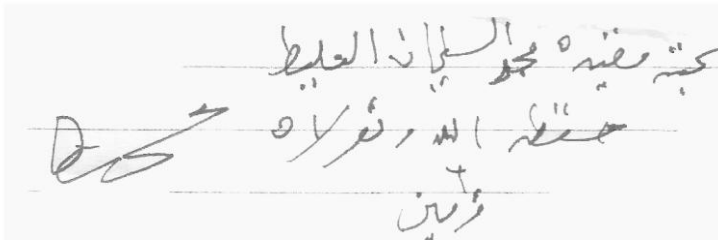 محمد السليمان العليط
حفظه الله وتولاه
آمين